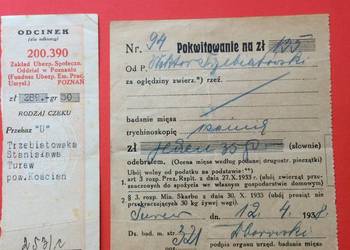 ODCINEK
(dla odbiorcy)
200.390
Zakład Ubezp. Społeczn.
Oddział w Poznaniu
(Fundusz Ubezp. Em. Prac. Umysł.) POZNAŃ
zł 289.- gr 50
RODZAJ CZEKU
Przekaz "U"
Trzebiatowska
Stanisława
Turew
pow. Kościan
Nr. 94 Pokwitowanie na zł
Od P. Wiktor Trzebiatowski
za oględziny zwierz.*) rzeź.
badanie mięsa
trychinoskopię
zł (słownie)
odebrałem. (Ocena mięsa według podanej drugostr. pieczątki)
Ubój wolny od podatku na podstawie**:
art. 3 rozp. Prez. Rzplit. z dnia 27. X 1933 r. (ubój zwierząt przeznaczonych do spożycia we własnym gospodarstwie domowym)
§ 3. rozp. Min. Skarbu z dnia 30. X. 1933 (ubój prosiąt nie przekraczających 30 kg żywej wagi).
Turew dnia 12. 4. 1938
Ds. bad. m. str. 321
podpis organu urzęd. badania mięs.